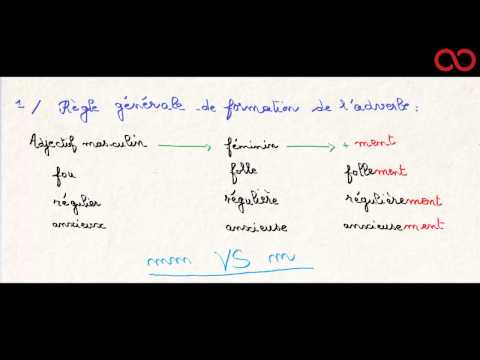 1/ Règle générale de formation de l'adverbe :
Adjectif masculin → féminin → + ment
fou folle follement
régulier régulière régulièrement
anxieux anxieuse anxieusement
mm VS m